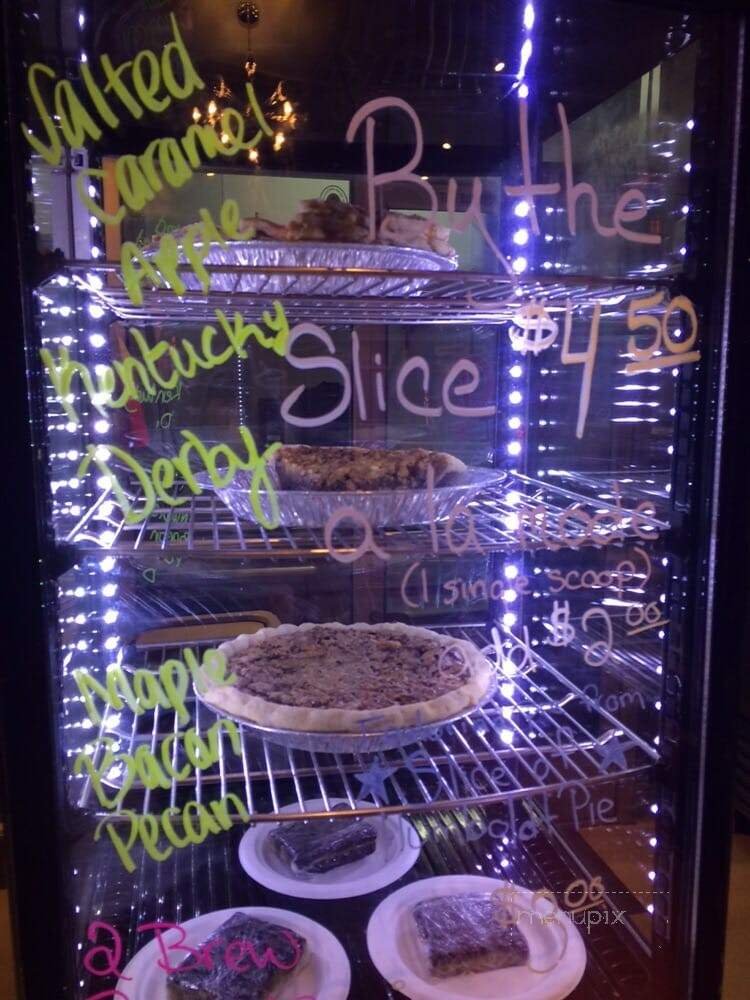 Salted
Caramel
Apple
Kentucky
Derby
Maple
Bacon
Pecan
2 Brew
By the
Slice $4.50
a la mode
(1 single scoop)
add $2.00
from
Slice of
Humboldt Pie
$3.00
menupix